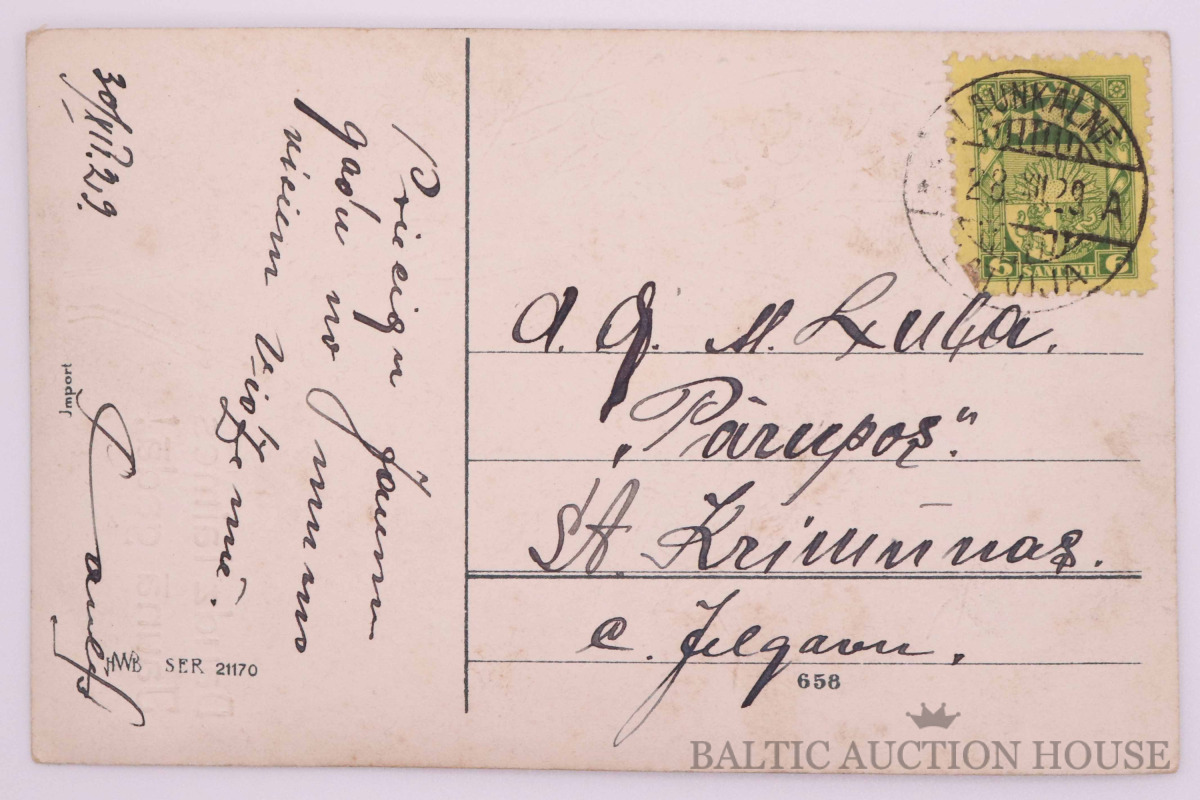 30/XII.29.
Priecigu Jaunu
gadu no mums
visiem
Import
HWB SER 21170
LATVIJA
JAUNKALNE
28 XII 29 A
LATVIJA
6 SANTIMI 6
A. G. M. Luta.
„Pārupos“.
St. Krimunas.
c. Jelgavu.
658
BALTIC AUCTION HOUSE